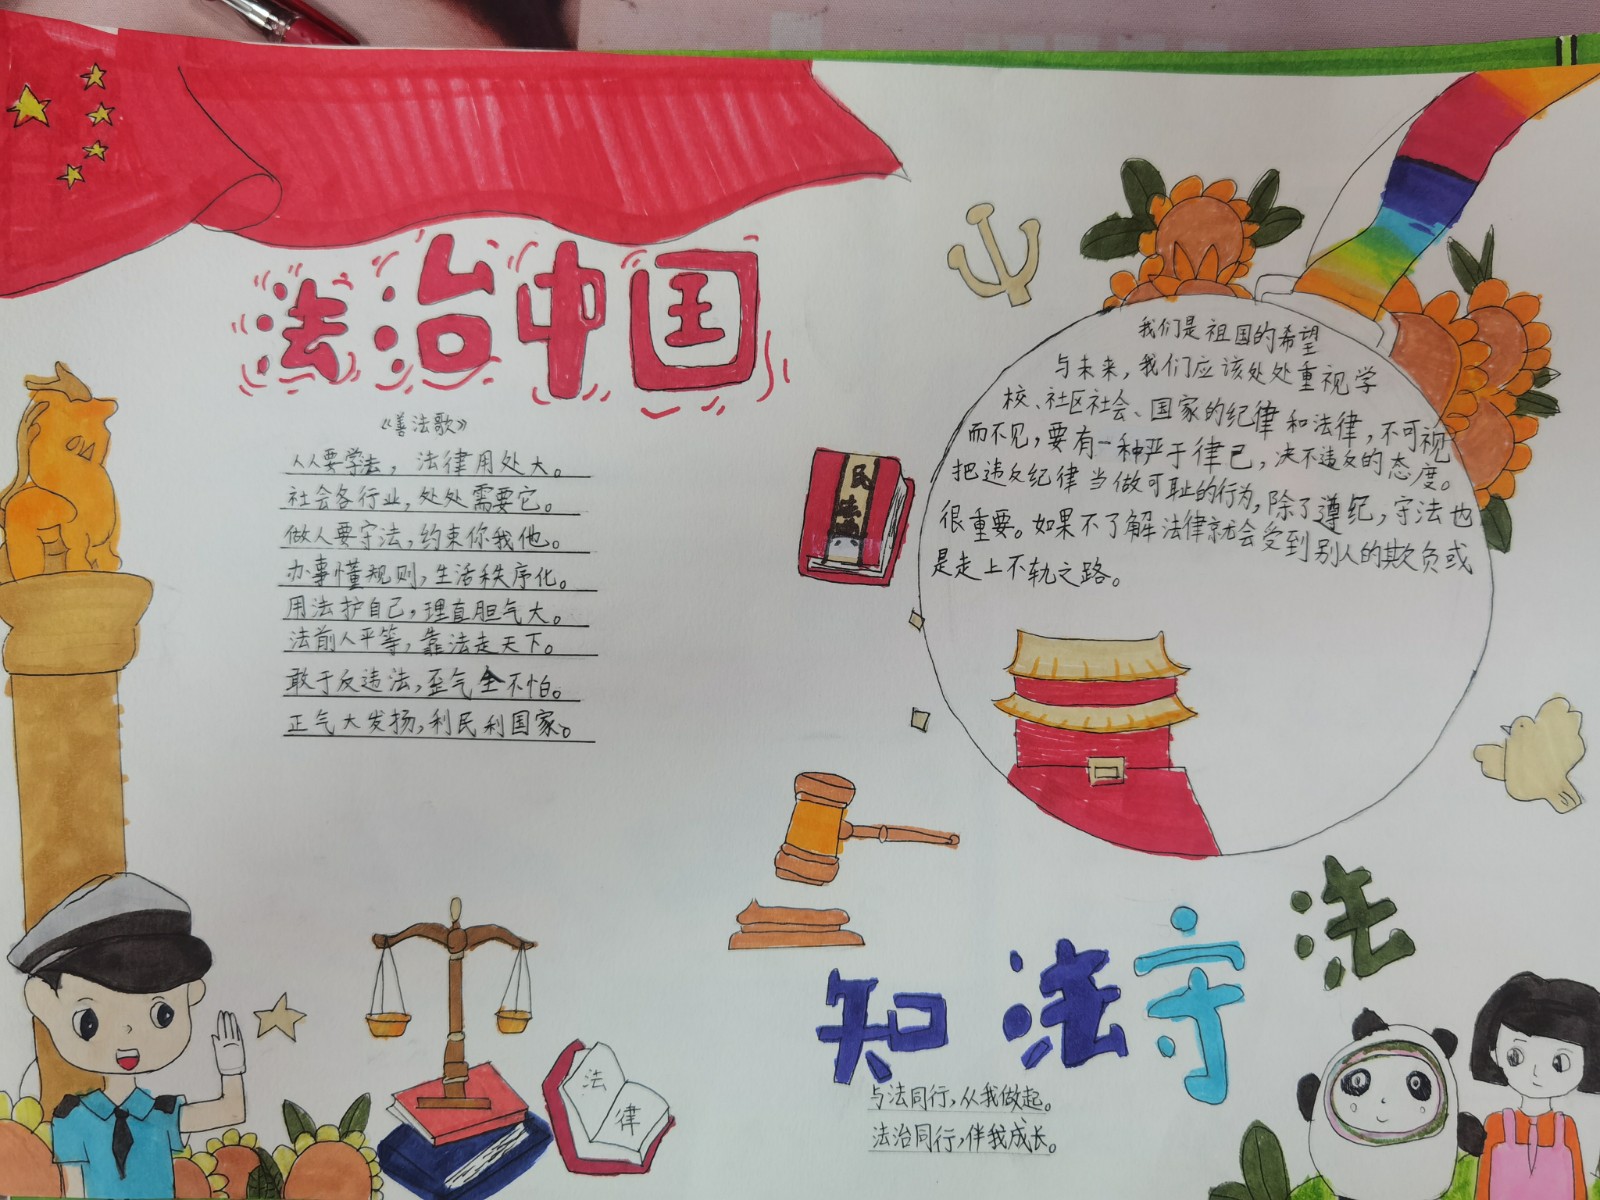 法治中国
《善法歌》
人人要学法，法律用处大。
社会各行业，处处需要它。
做人要守法，约束你我他。
办事懂规则，生活秩序化。
用法护自己，理直胆气大。
法前人平等，靠法走天下。
敢于反违法，歪气全不怕。
正气大发扬，利民利国家。
民法典
我们是祖国的希望
与未来，我们应该处处重视学
校、社区社会、国家的纪律和法律，不可视
而不见，要有一种严于律已，决不违反的态度。
把违反纪律当做可耻的行为，除了遵纪，守法也
很重要。如果不了解法律就会受到别人的欺负或
是走上不轨之路。
法律
知法守法
与法同行，从我做起。
法治同行，伴我成长。